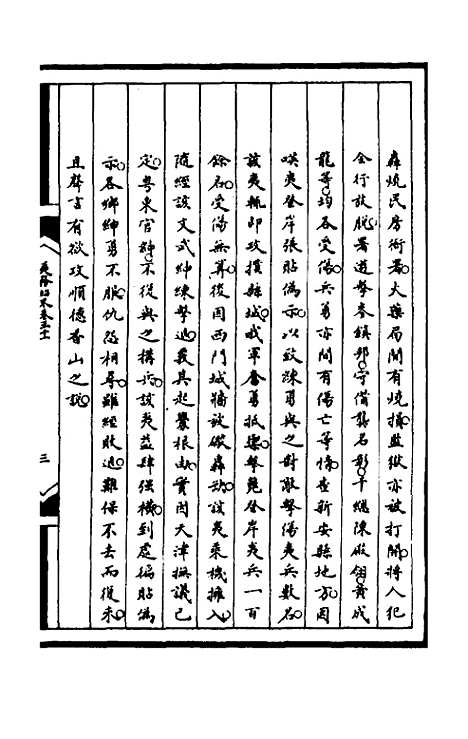 轟燒民房衙署火藥局間有燒損監獄亦被打開將人犯
全行放脫署遊擊麥鎮邦守備龔名彰千總陳殿翎黃成
龍等均各受傷兵勇亦間有傷亡等情查新安縣地方因
嘆夷登岸張貼偽示以致踈勇與之對敵擊傷夷兵數名
該夷輒即攻撲縣城我軍奮勇抵禦擊斃登岸夷兵一百
餘名受傷無算後因西門城牆被礮轟動該夷乘機擁入
隨經該文武紳練擊退覈其起釁根由實因天津撫議已
定粵東官紳不復與之構兵該夷益肆強機到處徧貼偽
示各鄉紳勇不服仇忿相尋雖經敗退難保不去而復來
且聲言有欲攻順德香山之說
夷務始末卷三十
三